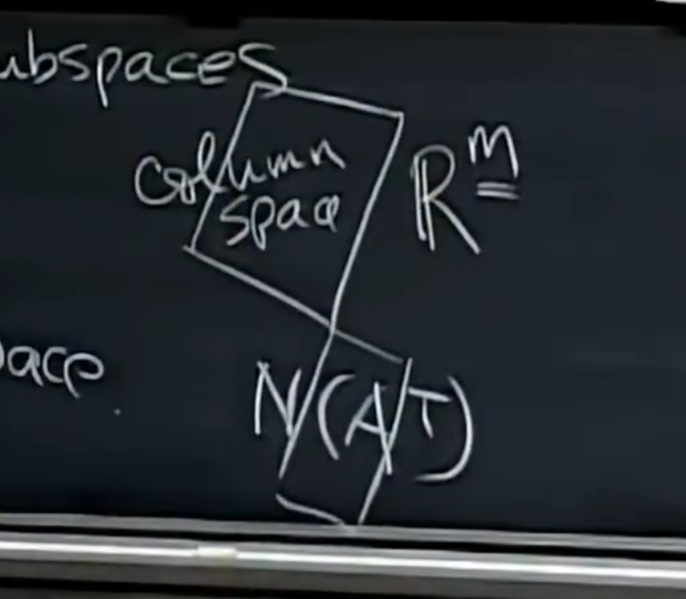 ubspaces
column
space
R^m
ace
N(A^T)